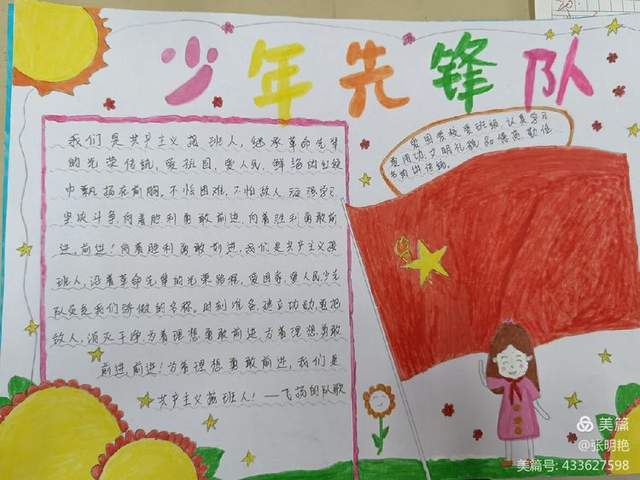 少年先锋队
我们是共产主义接班人，继承革命先辈
的光荣传统，爱祖国，爱人民，鲜艳的红领
巾飘扬在前胸。不怕困难，不怕敌人，顽强学习
坚决斗争，向着胜利勇敢前进，向着胜利勇敢前
进，前进！向着胜利勇敢前进，我们是共产主义接
班人，沿着革命先辈的光荣路程，爱国，爱人民少先
队员是我们骄傲的名称。时刻准备建立功勋，要把
敌人，消灭干净，为着理想勇敢前进，为着理想勇敢
前进，前进！为着理想勇敢前进，我们是
共产主义接班人！——的队歌
爱国爱校爱班级，认真学习
文明礼貌
传统
美篇
@张明艳
美篇号: 433627598